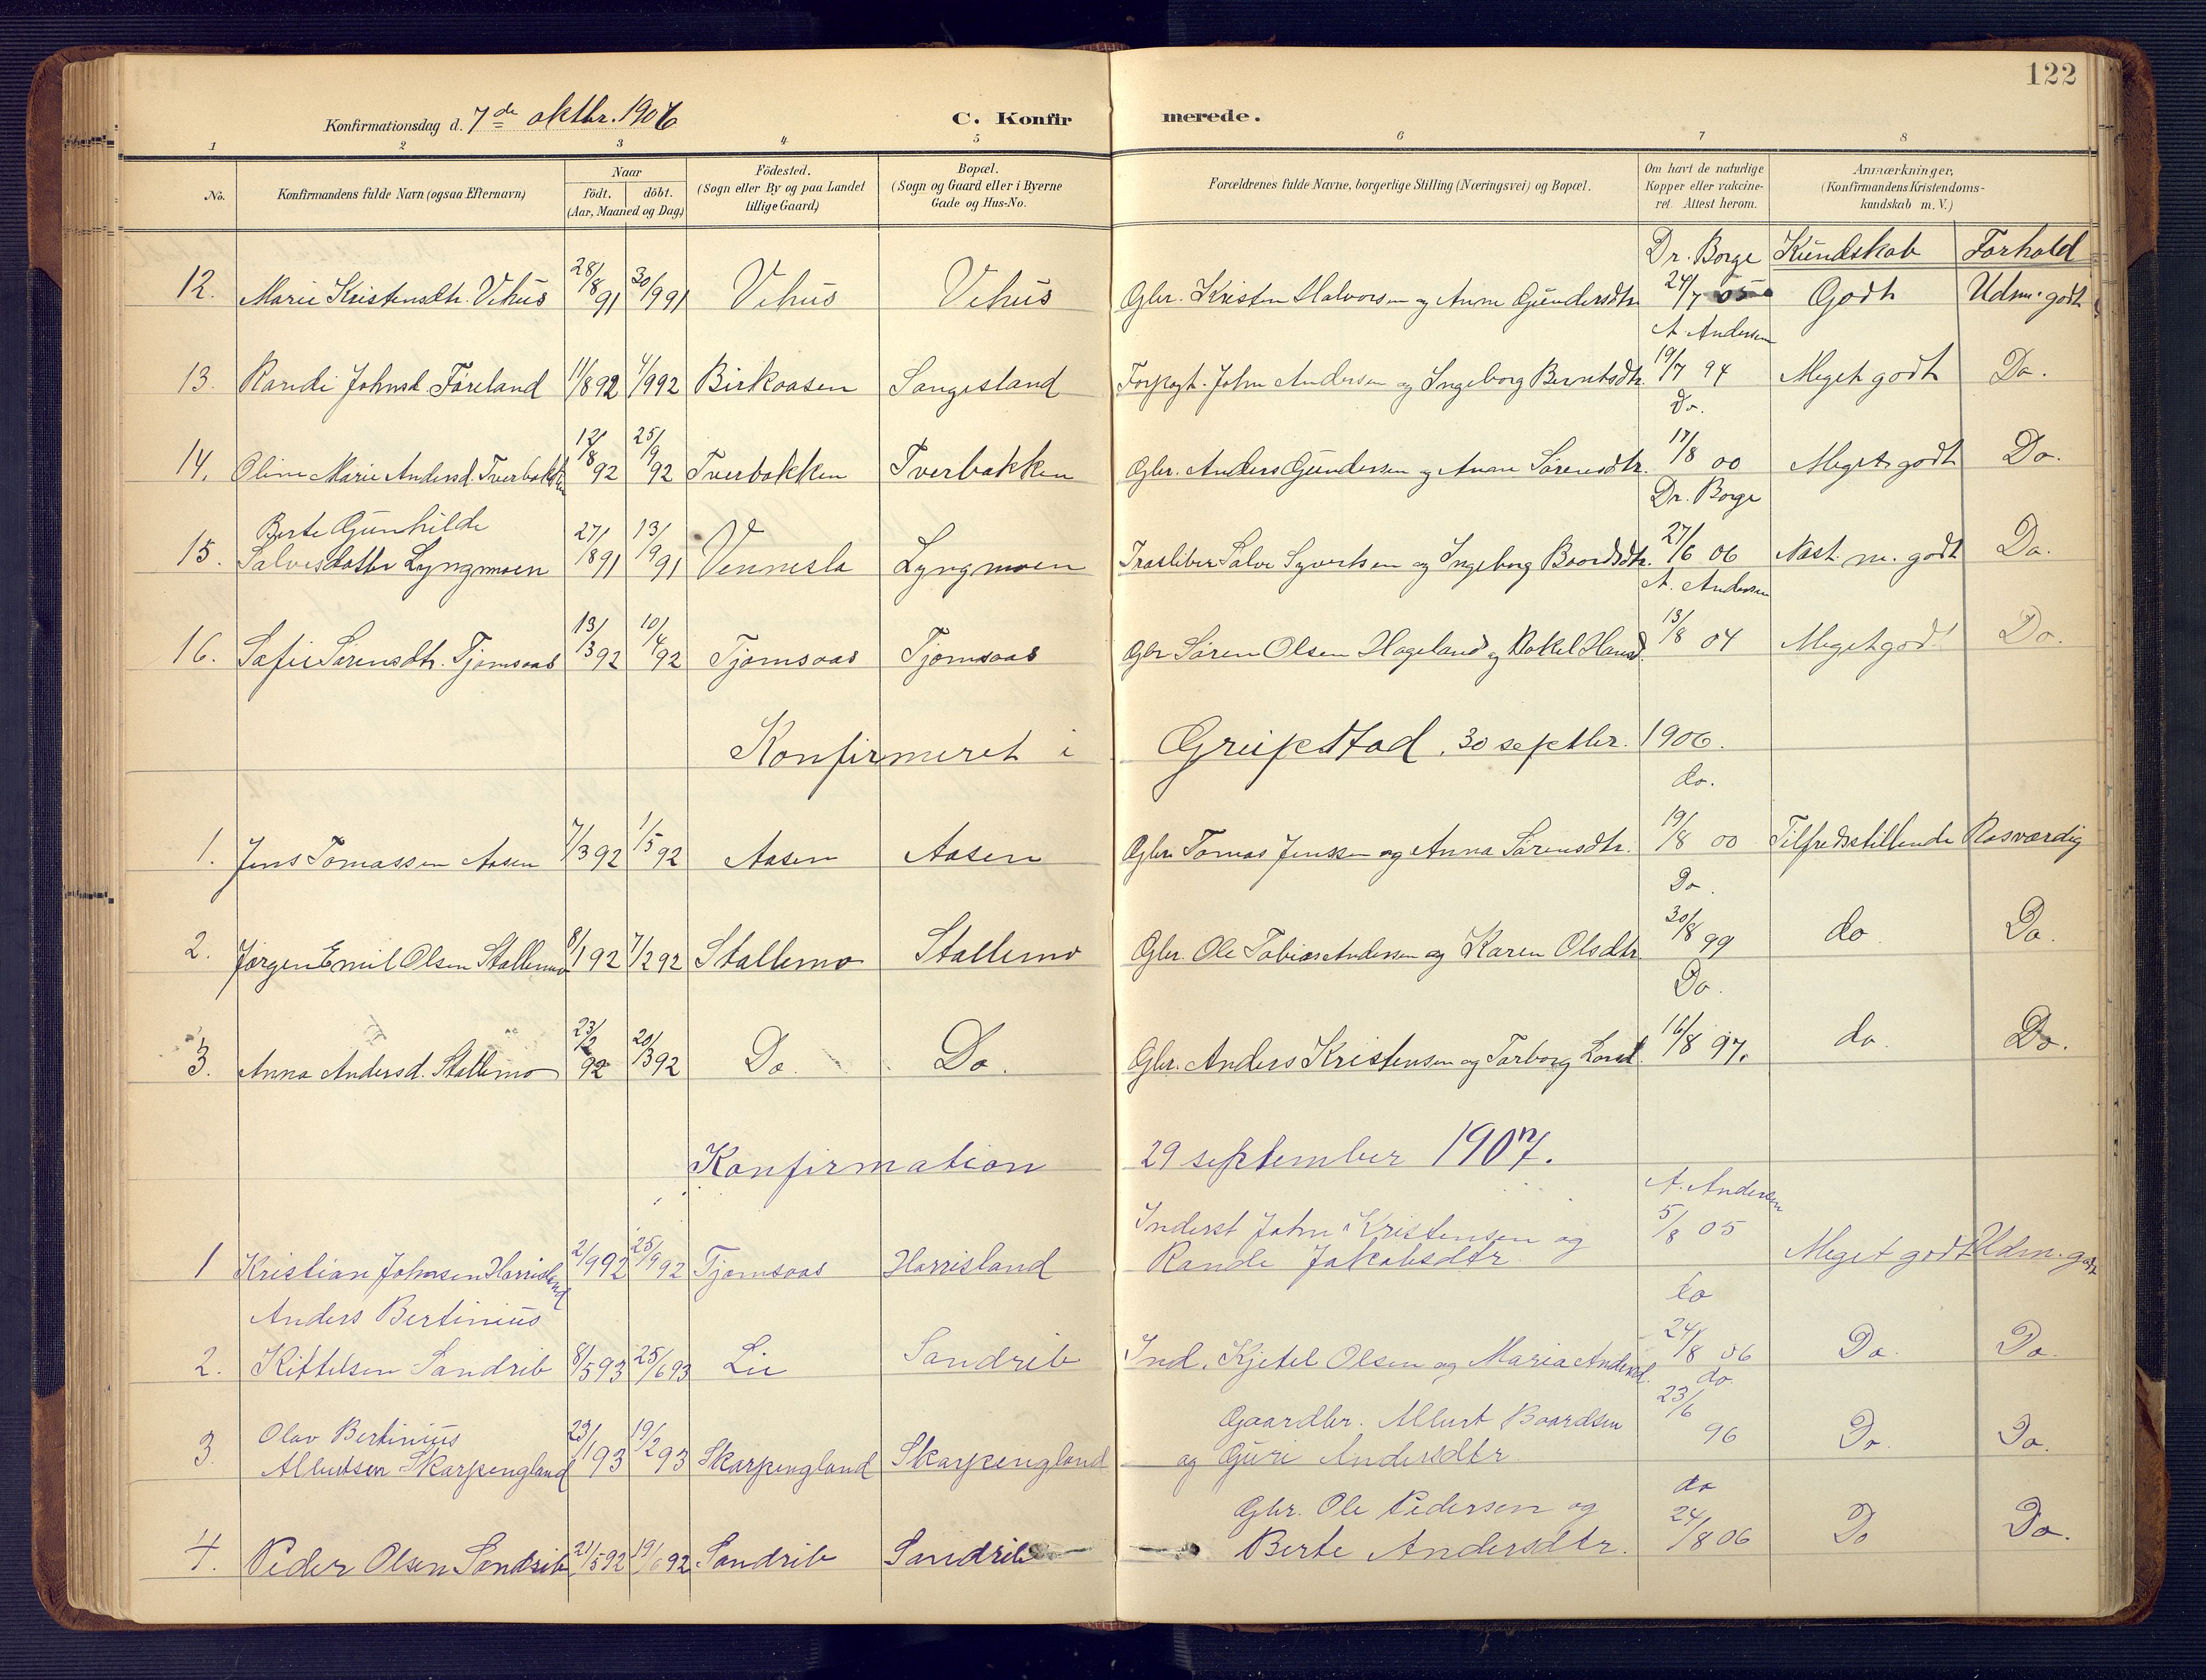 122
Konfirmationsdag d. 7de oktbr. 1906 C. Konfirmerede.
1 2 3 4 5 6 7 8
No. Konfirmandens fulde Navn (ogsaa Efternavn) Naar födt. döbt. (Aar, Maaned og Dag) Födested. (Sogn eller By og paa Landet tillige Gaard) Bopæl. (Sogn og Gaard eller i Byerne Gade og Hus-No. Forældrenes fulde Navne, borgerlige Stilling (Næringsvei) og Bopæl. Om havt de naturlige Kopper eller vakcineret. Attest herom. Anmærkninger, (Konfirmandens Kristendomskundskab m. V.)
Dr. Borge Kundskab Forhold
12. Marie Kristensdtr. Vehus 28/8 91 30/9 91 Vehus Vehus Gbr. Kristen Halvorsen og Anne Gundersdtr. 24/7 05 Godt Udm. godt
A. Andersen
13. Randi Johnsd. Föreland 11/8 92 4/9 92 Birkaasen Sangesland Forpagt. John Andersen og Ingeborg Berntsdtr. 19/7 94 Meget godt Do.
do.
14. Oline Marie Andersd. Tverbakken 12/8 92 25/9 92 Tverbakken Tverbakken Gbr. Anders Gundersen og Anne Sörensdtr. 17/8 00 Meget godt Do.
Dr. Borge
15. Berte Gunhilde
Salvesdatter Lyngmoen 27/8 91 13/9 91 Vennesla Lyngmoen Træsliber Salve Syvertsen og Ingeborg Baardsdtr. 27/6 06 Næst. m. godt Do.
A. Andersen
16. Sofie Sörensdtr. Tjomsaas 13/3 92 10/4 92 Tjomsaas Tjomsaas Gbr Sören Olsen Hageland og Rakel Hansd. 13/8 04 Meget godt Do.
Konfirmeret i Greipstad, 30 septbr. 1906.
do.
1. Jens Tomassen Aasen 7/3 92 1/5 92 Aasen Aasen Gbr. Tomas Jenssen og Anna Sörensdtr. 19/8 00 Tilfredsstillende Rosværdig
Do.
2. Jörgen Emil Olsen Stallemo 8/1 92 7/2 92 Stallemo Stallemo Gbr. Ole Tobias Andersen og Karen Olsdtr 30/8 99 do Do.
Do.
3. Anna Andersd. Stallemo 23/2 92 20/3 92 Do. Do. Gbr. Anders Kristensen og Torborg 16/8 97. do. Do.
Konfirmation 29 september 1907.
A. Andersen
1 Kristian Johnsen Harrisland 2/9 92 25/9 92 Tjomsaas Harrisland Inderst John Kristensen og
Rande Jakobsdtr. 5/8 05 Meget godt Udm. godt
do
2. Anders Bertinius
Kittelsen Sandrib 8/5 93 25/6 93 Lie Sandrib Ind. Kjetel Olsen og Maria Andersd. 24/8 06 Do. Do.
do.
3. Olav Bertinius
Albertsen Skarpengland 23/1 93 19/2 93 Skarpengland Skarpengland Gaardbr. Albert Baardsen
og Guri Andersdtr. 23/6 96 Do. Do.
do
4. Peder Olsen Sandrib 21/5 92 19/6 92 Sandrib Sandrib Gbr. Ole Pedersen og
Berte Andersdtr. 24/8 06 Do Do.